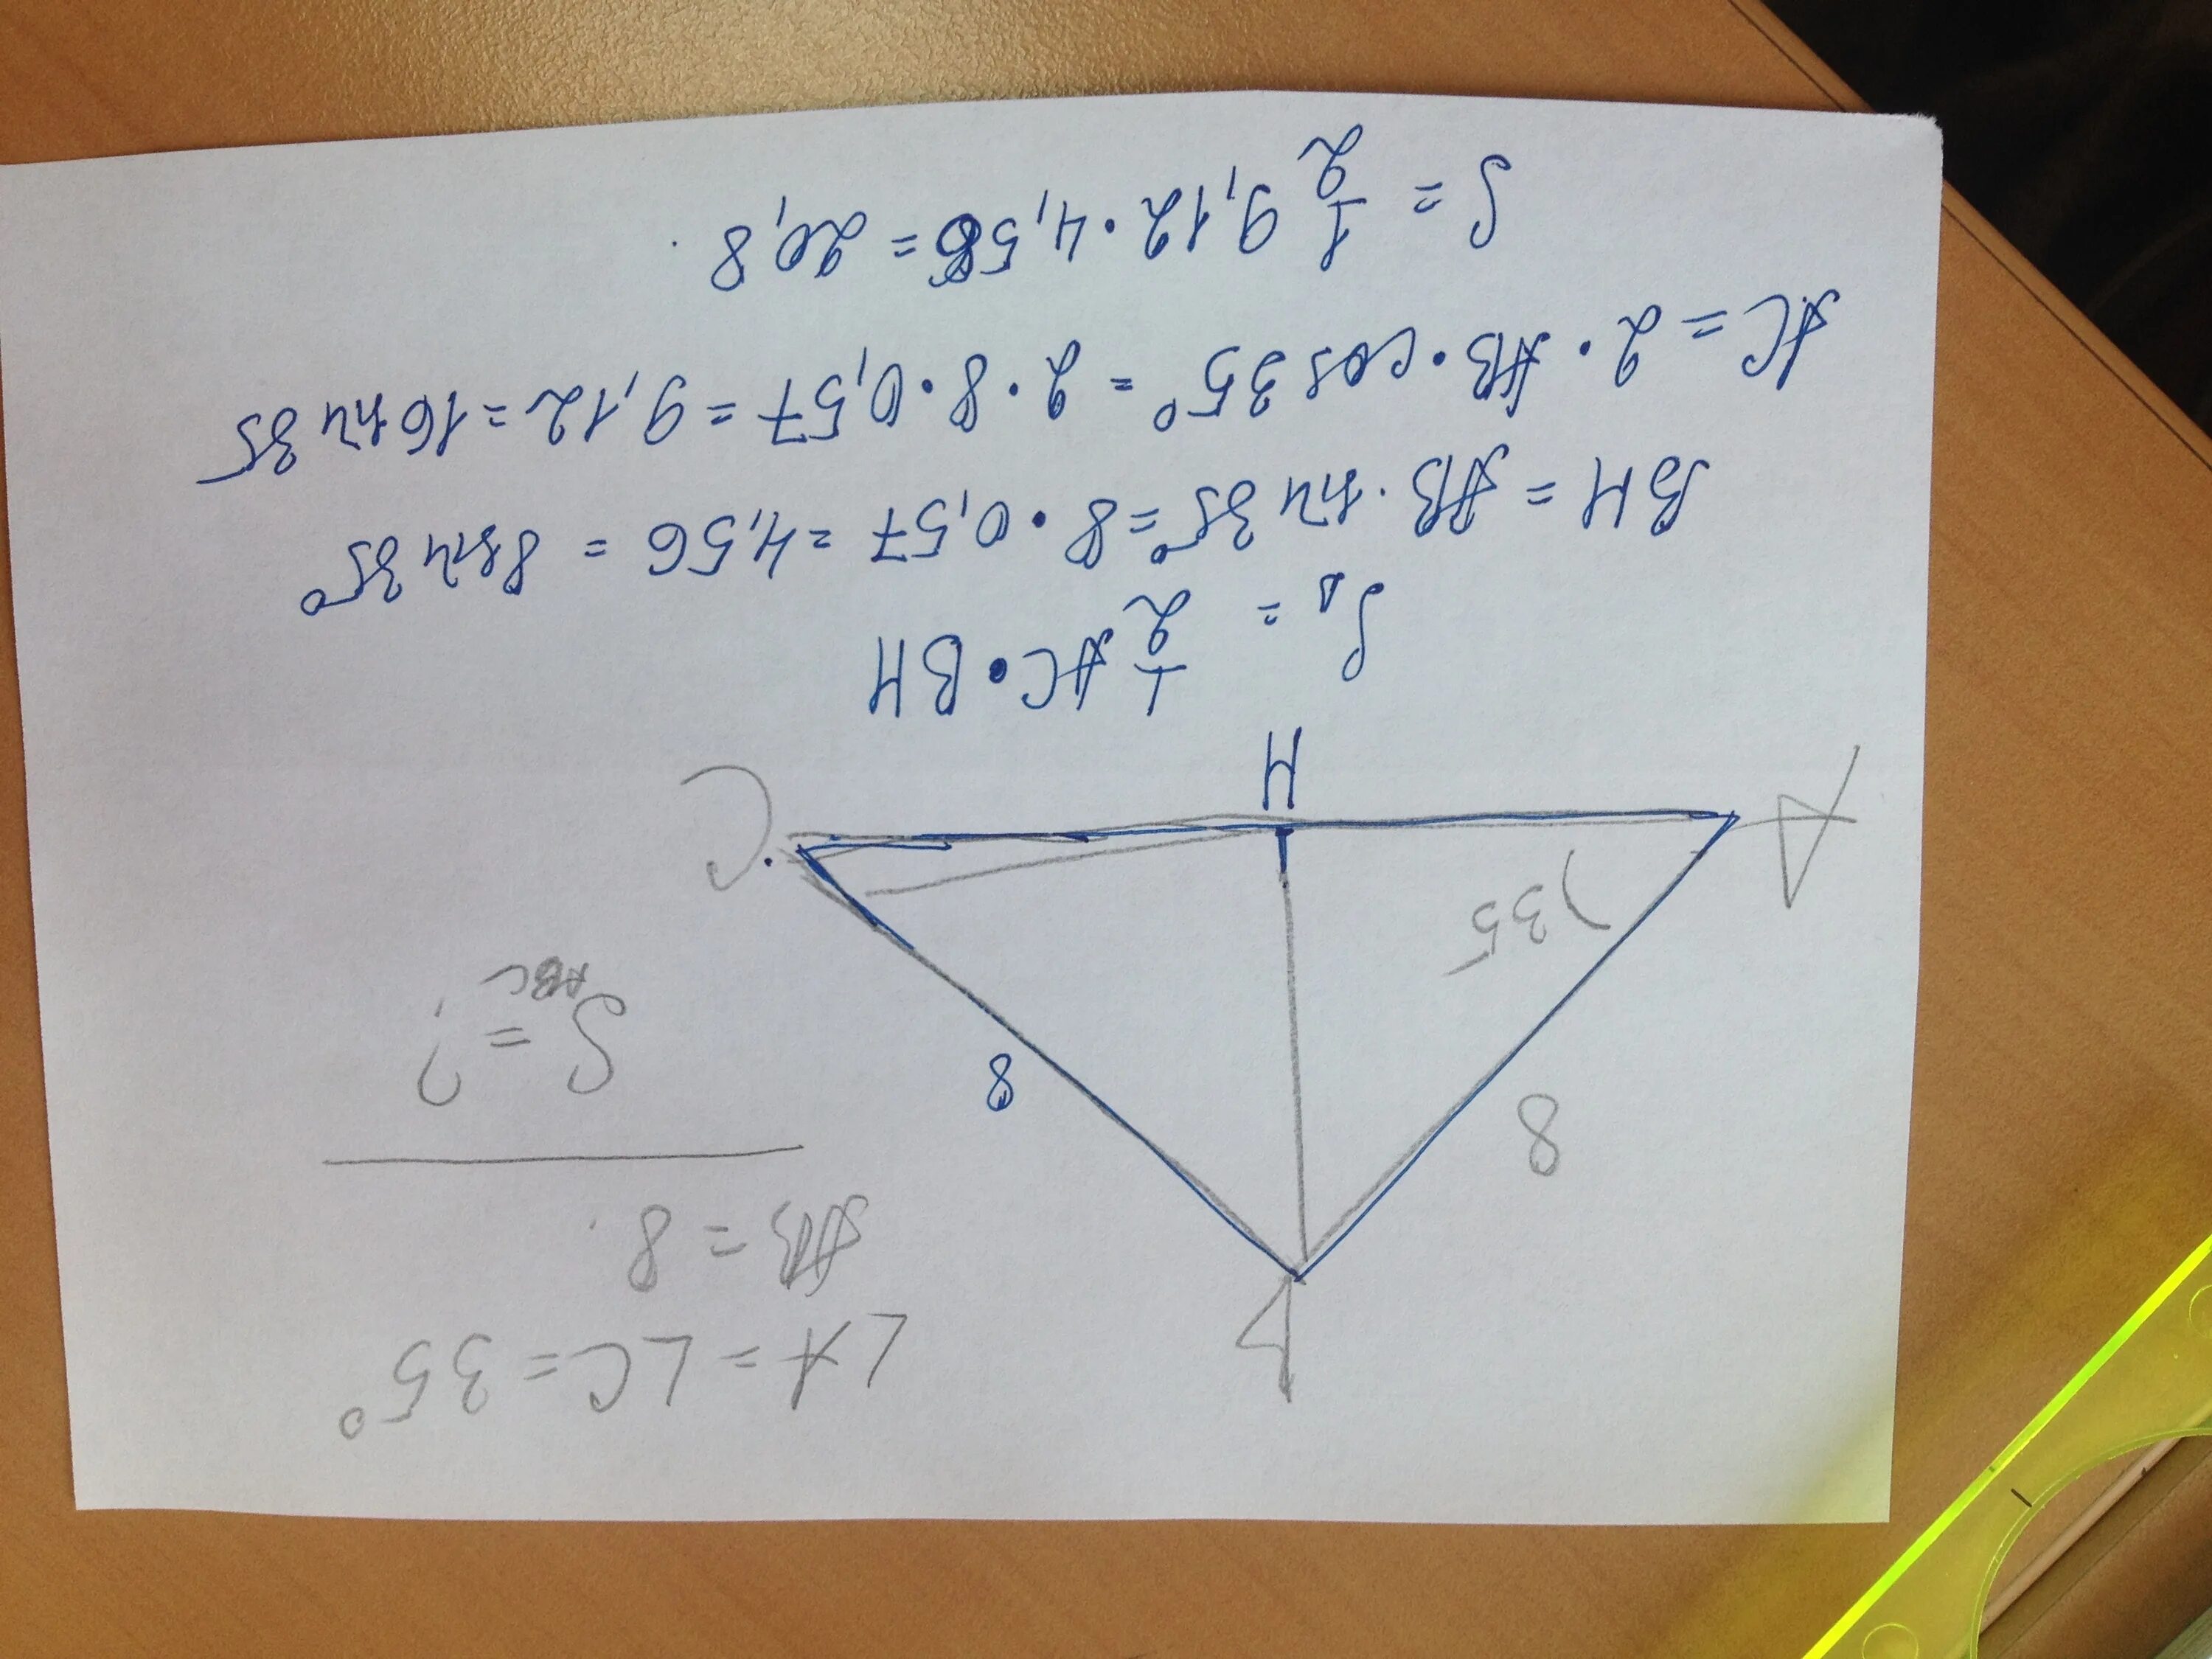 B
∠A = ∠C = 35°
AB = 8.
8
8
S ABC = ?
35
A
C
H
S△ = 1/2 AC • BH
BH = AB · sin 35° = 8 • 0,57 = 4,56 = 8 sin 35°
AC = 2 • AB • cos 35° = 2 • 8 • 0,57 = 9,12 = 16 sin 35
S = 1/2 9,12 • 4,56 = 20,8.